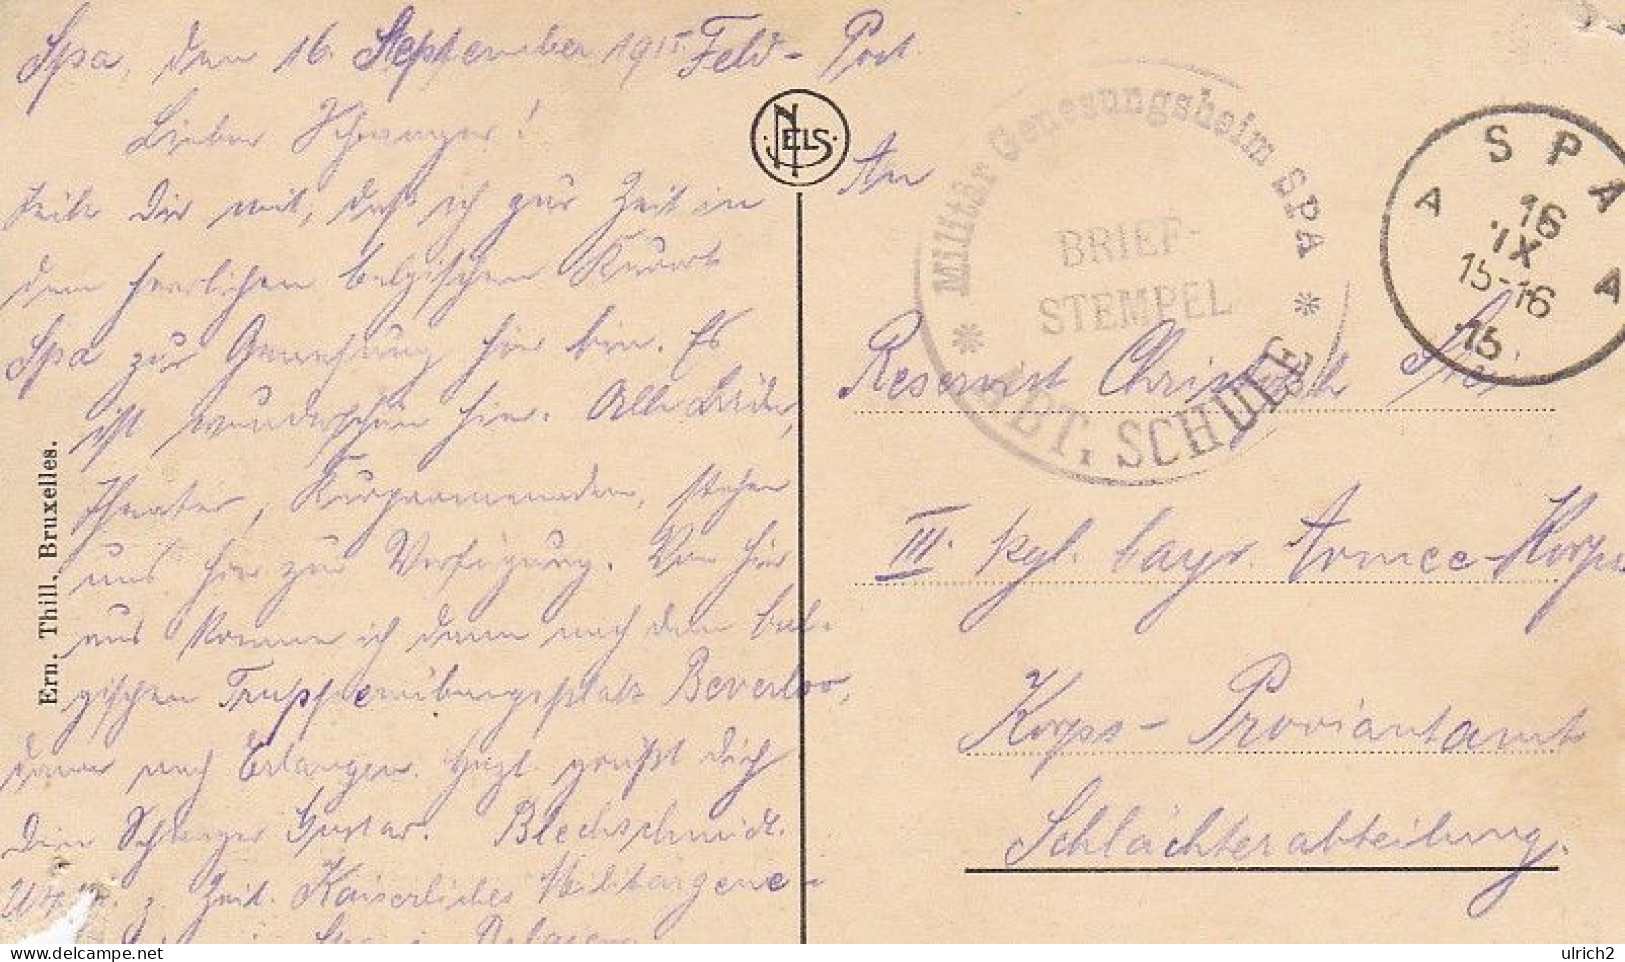 Spa, den 16. September 1915.
Lieber Schwager!
Teile Dir mit, daß ich zur Zeit in
dem herrlichen belgischen Kurort
Spa zur Genesung hier bin. Es
ist wunderschön hier. Alle Bäder,
Theater, Kurpromenaden, stehen
uns hier zur Verfügung. Von hier
aus komme ich dann nach dem bel-
gischen Truppenübungsplatz Beverloo,
dann nach Erlangen. grüßt Dich
Dein Schwager Gustav. Blechschmidt.
z. Zeit. Kaiserliches Militärgene-
Spa i. Belgien
Ern. Thill, Bruxelles.
NELS
Feld-Post
An
Reservist Christoph
III. kgl. bayr. Armee-Korps
Korps-Proviantamt
Schlächterabteilung.
Militär Genesungsheim SPA
BRIEF-
STEMPEL
* ABT. SCHULE *
SPA
A A
16
IX
15-16
15
ulrich2